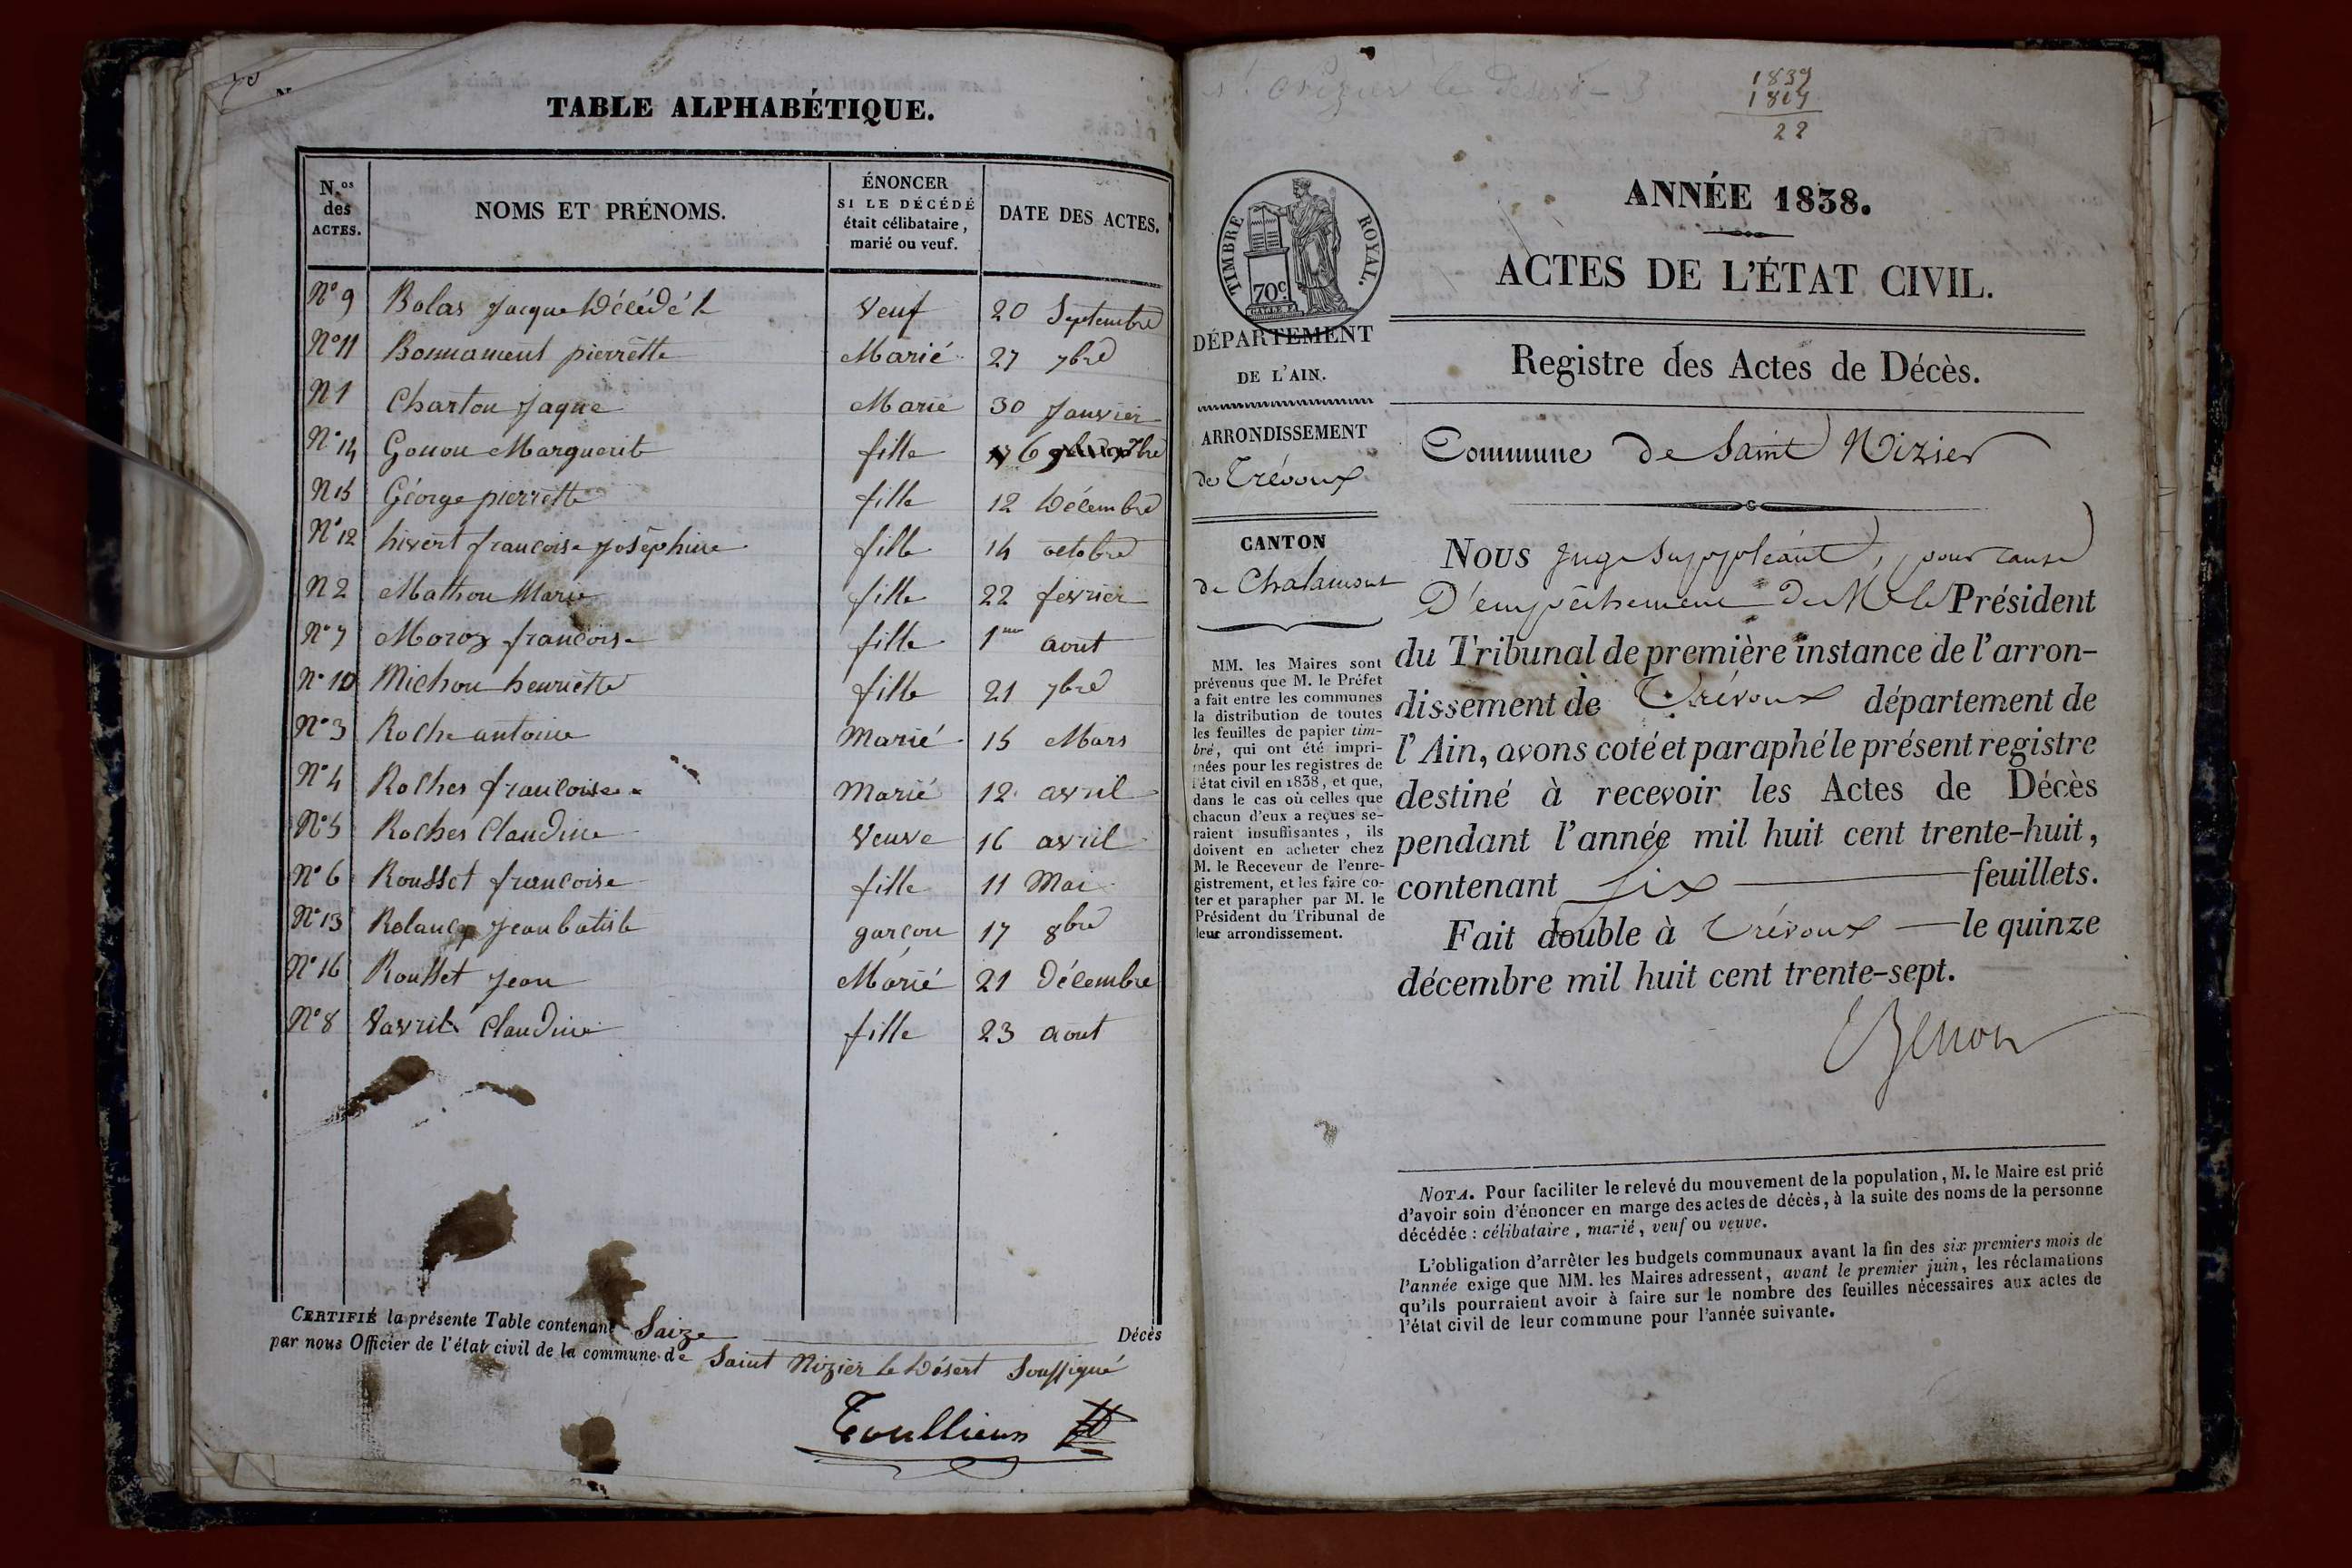 TABLE ALPHABÉTIQUE.
N.os des ACTES.
NOMS ET PRÉNOMS.
ÉNONCER
SI LE DÉCÉDÉ
était célibataire,
marié ou veuf.
DATE DES ACTES.
N° 9 Bolas Jacque Décédé l Veuf 20 Septembre
N° 11 Bonnament pierrette Marié 27 7bre
N 1 Charton Jaque Marié 30 Janvier
N° 14 Gonon Marguerit fille 6
N 15 Géorge pierrette fille 12 Décembre
N° 12 hivert francoise Joséphine fille 14 octobre
N 2 Mathon Marie fille 22 fevrier
N° 7 Moroz francoise fille 1er aout
N° 10 Michon henriette fille 21 7bre
N° 3 Roche antoine Marié 15 Mars
N° 4 Roches francoise Marié 12 avril
N° 5 Roches Claudine Veuve 16 avril
N° 6 Rousset francoise fille 11 Mai
N° 13 Jean batiste garcon 17 8bre
N° 16 Rousset Jean Marié 21 Décembre
N° 8 Vavril Claudine fille 23 aout
CERTIFIÉ la présente Table contenant Saize Décès
par nous Officier de l'état civil de la commune de Saint Nizier le Désert Soussigné
1839
22
TIMBRE ROYAL.
70c
ANNÉE 1838.
ACTES DE L'ÉTAT CIVIL.
Registre des Actes de Décès.
Commune de Saint Nizier
DÉPARTEMENT
DE L'AIN.
ARRONDISSEMENT
de Trévoux
CANTON
de Chalamont
MM. les Maires sont
prévenus que M. le Préfet
a fait entre les communes
la distribution de toutes
les feuilles de papier tim-
bré, qui ont été impri-
mées pour les registres de
l'état civil en 1838, et que,
dans le cas où celles que
chacun d'eux a reçues se-
raient insuffisantes, ils
doivent en acheter chez
M. le Receveur de l'enre-
gistrement, et les faire co-
ter et parapher par M. le
Président du Tribunal de
leur arrondissement.
Nous Juge Suppléant, pour cause
D'empêchement de M le Président
du Tribunal de première instance de l'arron-
dissement de Trévoux département de
l'Ain, avons coté et paraphé le présent registre
destiné à recevoir les Actes de Décès
pendant l'année mil huit cent trente-huit,
contenant Six feuillets.
Fait double à Trévoux le quinze
décembre mil huit cent trente-sept.
NOTA. Pour faciliter le relevé du mouvement de la population, M. le Maire est prié
d'avoir soin d'énoncer en marge des actes de décès, à la suite des noms de la personne
décédée : célibataire, marié, veuf ou veuve.
L'obligation d'arrêter les budgets communaux avant la fin des six premiers mois de
l'année exige que MM. les Maires adressent, avant le premier juin, les réclamations
qu'ils pourraient avoir à faire sur le nombre des feuilles nécessaires aux actes de
l'état civil de leur commune pour l'année suivante.